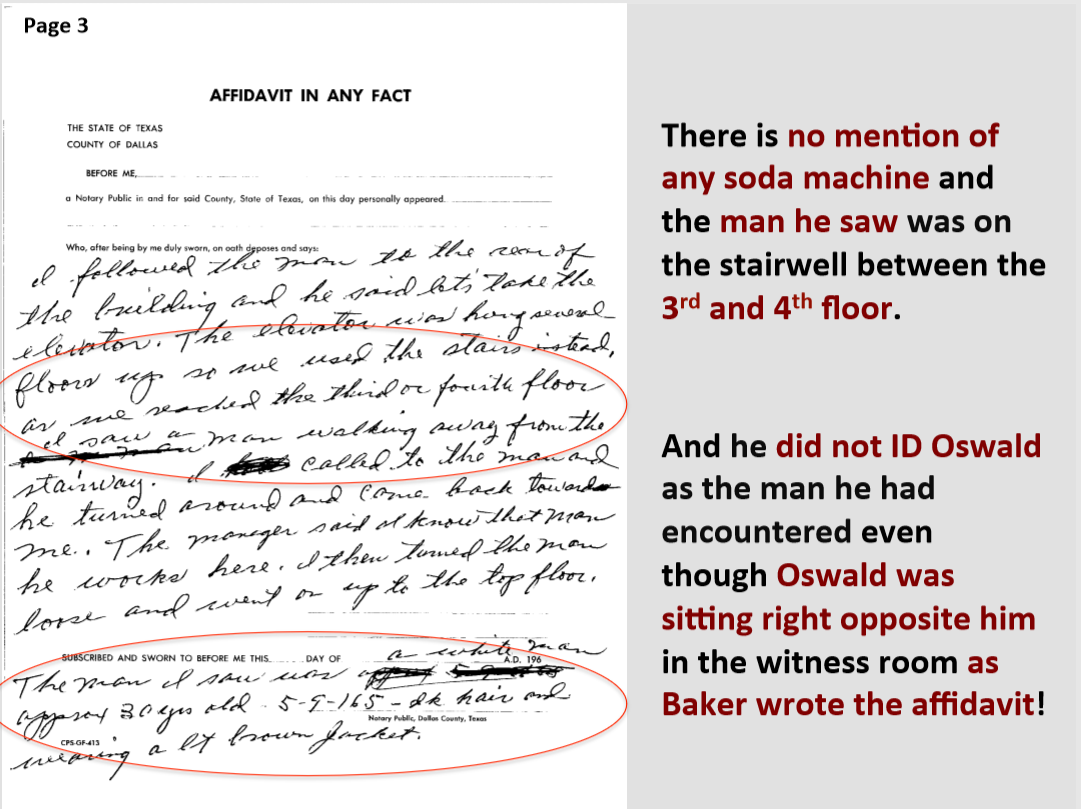 Page 3
AFFIDAVIT IN ANY FACT
THE STATE OF TEXAS
COUNTY OF DALLAS
BEFORE ME,
a Notary Public in and for said County, State of Texas, on this day personally appeared
Who, after being by me duly sworn, on oath deposes and says:
I followed the man to the rear of
the building and he said let's take the
elevator. The elevator was hung several
floors up so we used the stairs instead,
as we reached the third or fourth floor
I saw a man walking away from the
stairway. I called to the man and
he turned around and came back toward
me. The manager said I know that man
he works here. I then turned the man
loose and went on up to the top floor.
SUBSCRIBED AND SWORN TO BEFORE ME THIS DAY OF A.D. 196
The man I saw was a white man
approx 30 yrs old - 5-9-165 - dk hair and
Notary Public, Dallas County, Texas
CPS-GF-413
wearing a lt brown Jacket.
There is no mention of
any soda machine and
the man he saw was on
the stairwell between the
3rd and 4th floor.
And he did not ID Oswald
as the man he had
encountered even
though Oswald was
sitting right opposite him
in the witness room as
Baker wrote the affidavit!